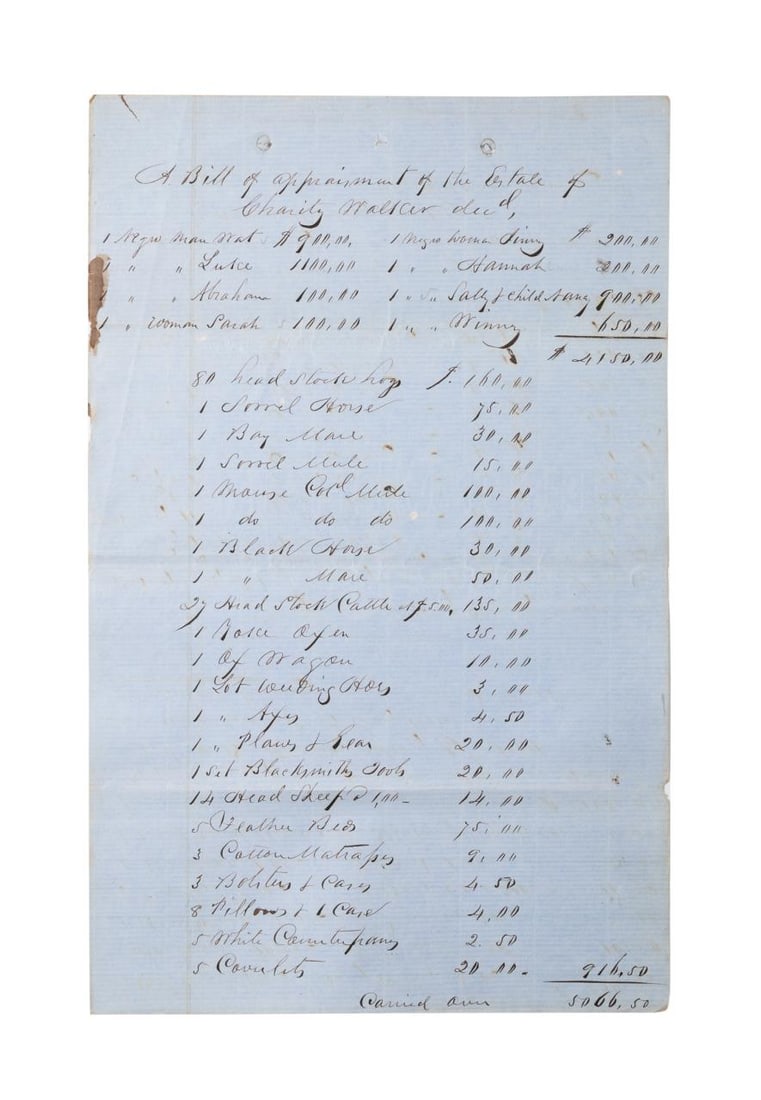 A Bill of appraisment of the Estate of
Charity Walker decd,
1 Negro Man Wat $ 900,00, 1 Negro Woman Jinny $ 200,00
1 " " Luke 1100,00 1 " " Hannah 200,00
1 " " Abraham 100,00 1 " " Sally & child Nancy 900,00
1 " Woman Sarah 100,00 1 " " Winny 650,00
$ 4150,00
80 head Stock hogs $. 160,00
1 Sorrel Horse 75,00
1 Bay Mare 30,00
1 Sorrel Mule 15,00
1 Mouse Cold Mule 100,00
1 do do do 100,00
1 Black Horse 30,00
1 " Mare 50,00
27 Head Stock Cattle at $5.00, 135,00
1 Yoke Oxen 35,00
1 Ox Wagon 10,00
1 Lot Weeding Hoes 3,00
1 " Axes 4.50
1 " Plows & Gear 20,00
1 Set Blacksmiths Tools 20,00
14 Head Sheep 1,00- 14,00
5 Feather Beds 75,00
3 Cotton Matrasses 9,00
3 Bolsters & Cases 4.50
8 Pillows & 1 Case 4,00
5 White Counterpanes 2.50
5 Coverlets 20 00- 916,50
Carried over 5066,50